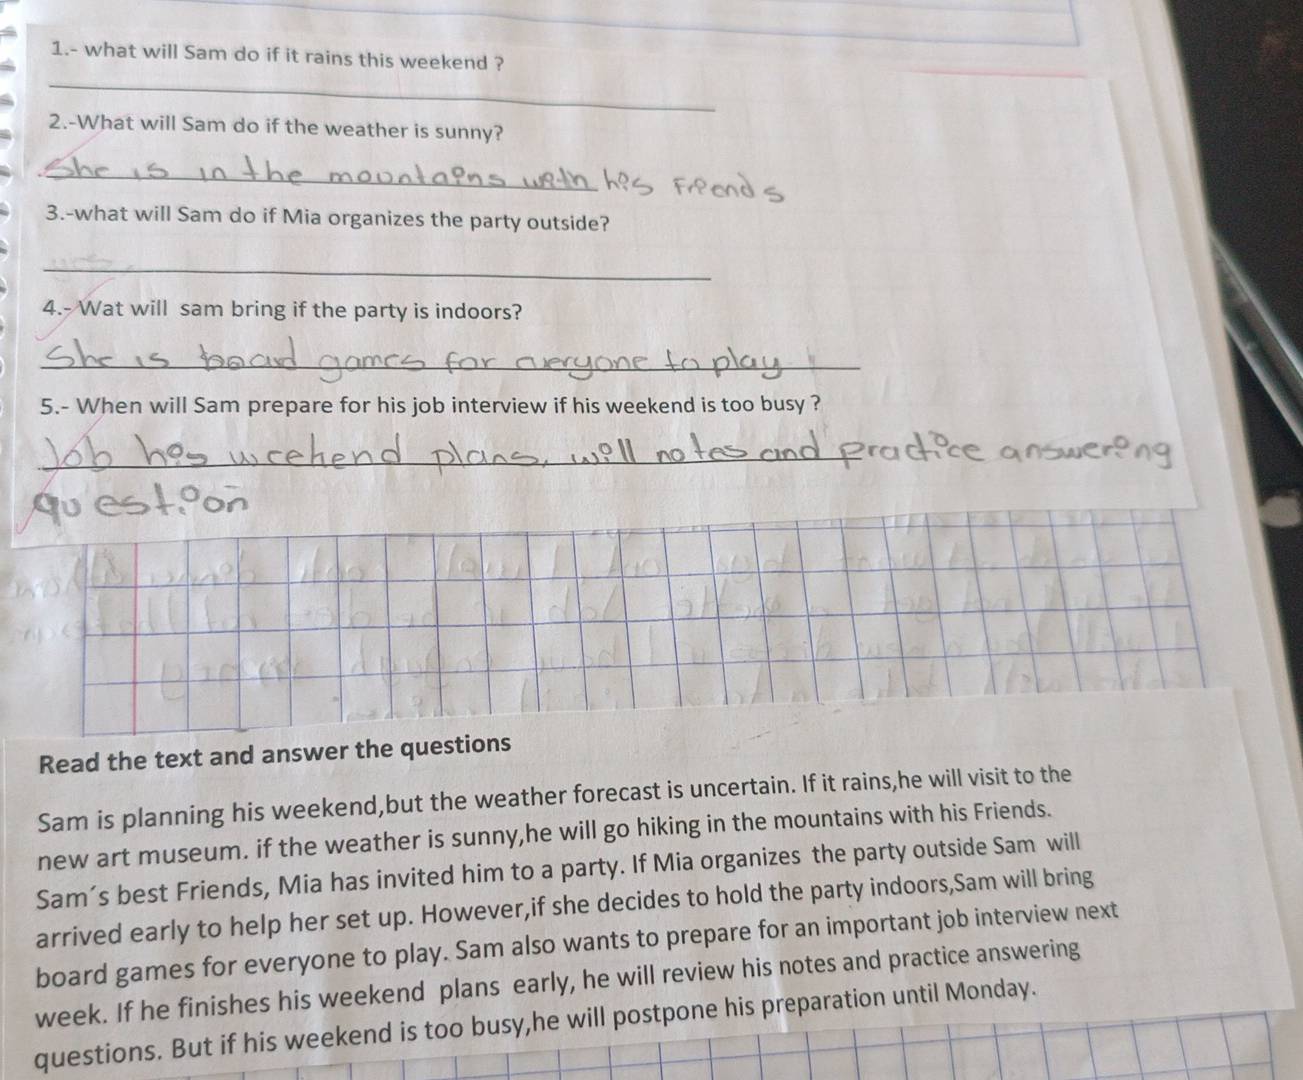 1.- what will Sam do if it rains this weekend ?
2.-What will Sam do if the weather is sunny?
She is in the mountains with his Friends
3.-what will Sam do if Mia organizes the party outside?
4.- Wat will sam bring if the party is indoors?
She is board games for everyone to play
5.- When will Sam prepare for his job interview if his weekend is too busy ?
Job his weekend plans, will notes and practice answering
question
Read the text and answer the questions
Sam is planning his weekend,but the weather forecast is uncertain. If it rains,he will visit to the
new art museum. if the weather is sunny,he will go hiking in the mountains with his Friends.
Sam´s best Friends, Mia has invited him to a party. If Mia organizes the party outside Sam will
arrived early to help her set up. However,if she decides to hold the party indoors,Sam will bring
board games for everyone to play. Sam also wants to prepare for an important job interview next
week. If he finishes his weekend plans early, he will review his notes and practice answering
questions. But if his weekend is too busy,he will postpone his preparation until Monday.